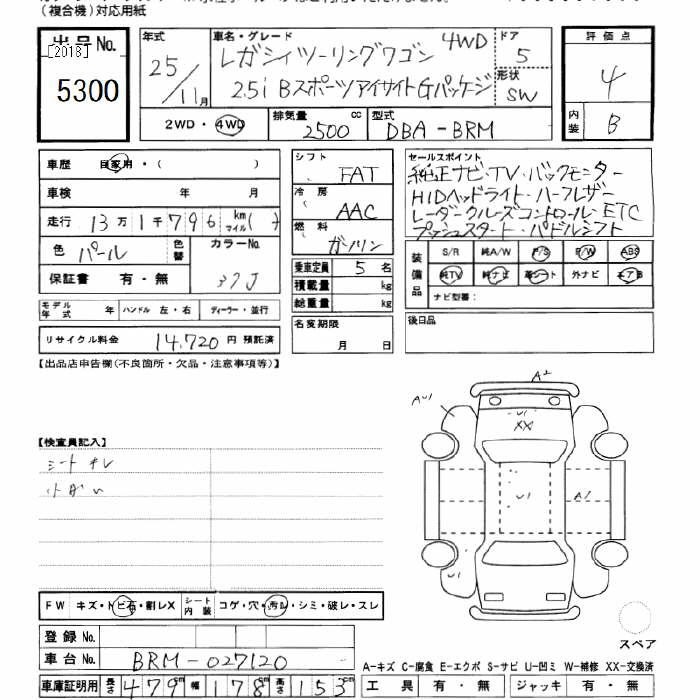 (複合機)対応用紙
出品No. [2013] 5300
年式 25/11月
車名・グレード レガシィツーリングワゴン 4WD
2.5i Bスポーツアイサイト Gパッケージ
ドア 5
形状 SW
2WD・4WD
排気量 2500 cc
型式 DBA-BRM
評価点 4
内装 B
車歴 自家用・( )
車検 年 月
走行 13万1千796 km マイル( )
色 パール 色替 カラーNo. 37J
保証書 有・無
モデル年式 年 ハンドル 左・右 ディーラー・並行
リサイクル料金 14,720円 預託済
シフト FAT
冷房 AAC
燃料 ガソリン
乗車定員 5名
積載量 kg
総重量 kg
名変期限 月 日
セールスポイント
純正ナビ・TV・バックモニター
HIDヘッドライト・ハーフレザー
レーダークルーズコントロール・ETC
プッシュスタート・パドルシフト
装備品 S/R 純A/W P/S P/W ABS
純TV 純ナビ 革シート 外ナビ エアB
ナビ型番:
後日品
【出品店申告欄(不良箇所・欠品・注意事項等)】
【検査員記入】
シートキレ
小キズ
A2
AU1
U1
XX
U1
A1
U1
FW キズ・トビ石・割レX シート内装 コゲ・穴・汚レ・シミ・破レ・スレ
登録No.
車台No. BRM-027120
車庫証明用 長さ 479cm 幅 178cm 高さ 153cm
スペア
A-キズ C-腐食 E-エクボ S-サビ U-凹ミ W-補修 XX-交換済
工具 有・無 ジャッキ 有・無